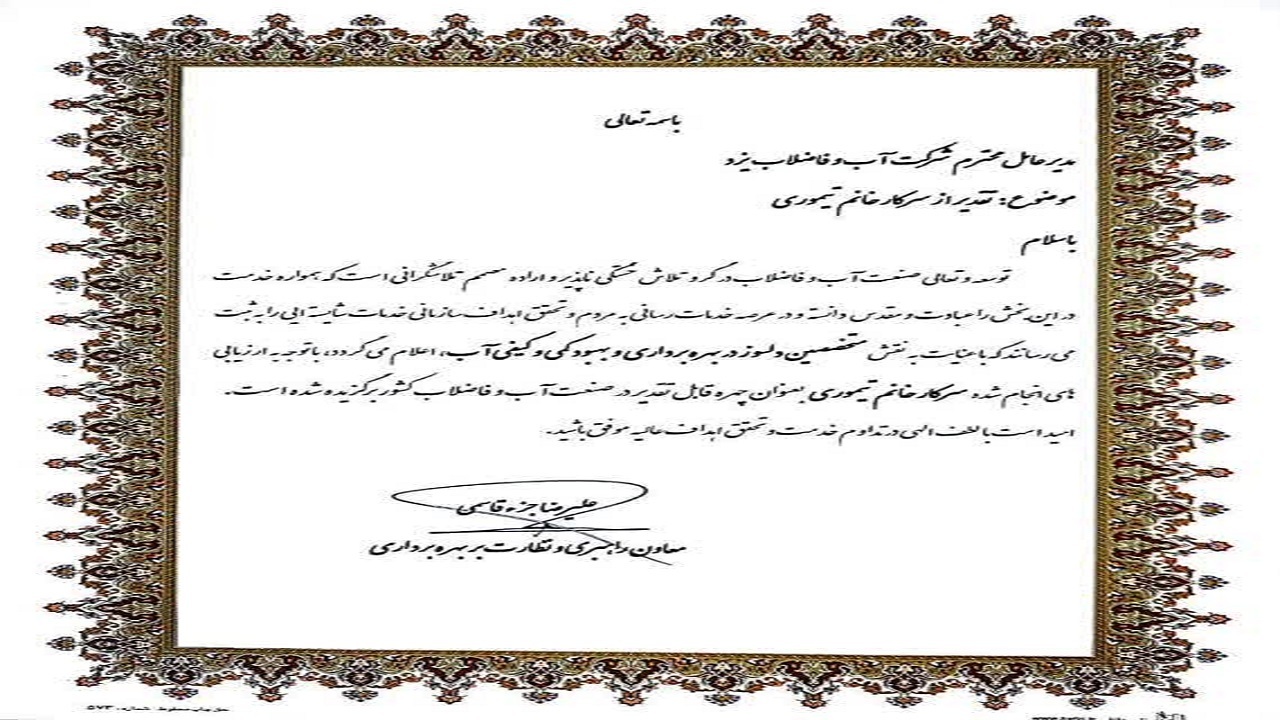 باسمه تعالی
مدیرعامل محترم شرکت آب و فاضلاب یزد
موضوع: تقدیر از سرکار خانم تیموری
باسلام
توسعه و تعالی صنعت آب و فاضلاب در گرو تلاش خستگی ناپذیر و اراده مصمم تلاشگرانی است که همواره خدمت
در این بخش را عبادت و مقدس دانسته و در عرصه خدمات رسانی به مردم و تحقق اهداف سازمانی خدمات شایسته ایی را به ثبت
می رسانند که با عنایت به نقش متخصصین دلسوز در بهره برداری و بهبود کمی و کیفی آب، اعلام می گردد، با توجه به ارزیابی
های انجام شده سرکار خانم تیموری بعنوان چهره قابل تقدیر در صنعت آب و فاضلاب کشور برگزیده شده است.
امید است با لطف الهی در تداوم خدمت و تحقق اهداف عالیه موفق باشید.
علیرضا جزء قاسمی
معاون راهبری و نظارت بر بهره برداری
حق چاپ محفوظ. شماره: ۵۷۳